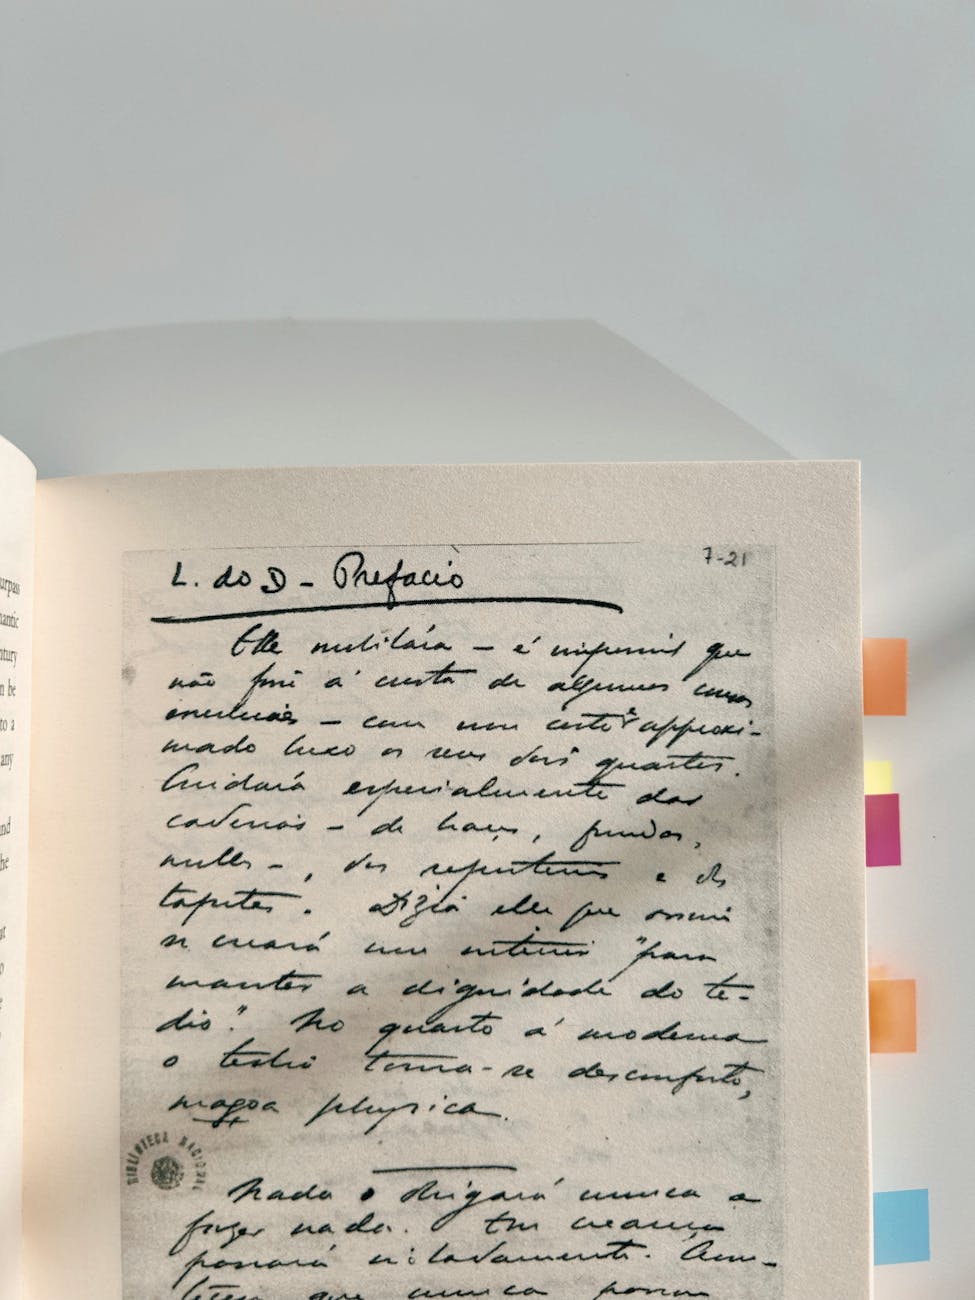 be
to a
any
L. do D - Prefacio
7-21
Elle mobilára – é impossivel que
não fosse á custa de algumas cousas
essenciaes – com um certo e approxi-
mado luxo os seus dois quartos.
Cuidará especialmente das
cadeiras – de braços, fundas,
molles –, dos reposteiros e dos
tapetes. Dizia elle que assim
se creará um interior "para
manter a dignidade do te-
dio". No quarto á moderna
o tedio torna-se desconforto,
magoa physica.
BIBLIOTECA NACIONAL
Nada o obrigará nunca a
fazer nada. Em creança
passará isoladamente. Acon-
teceu que nunca passou